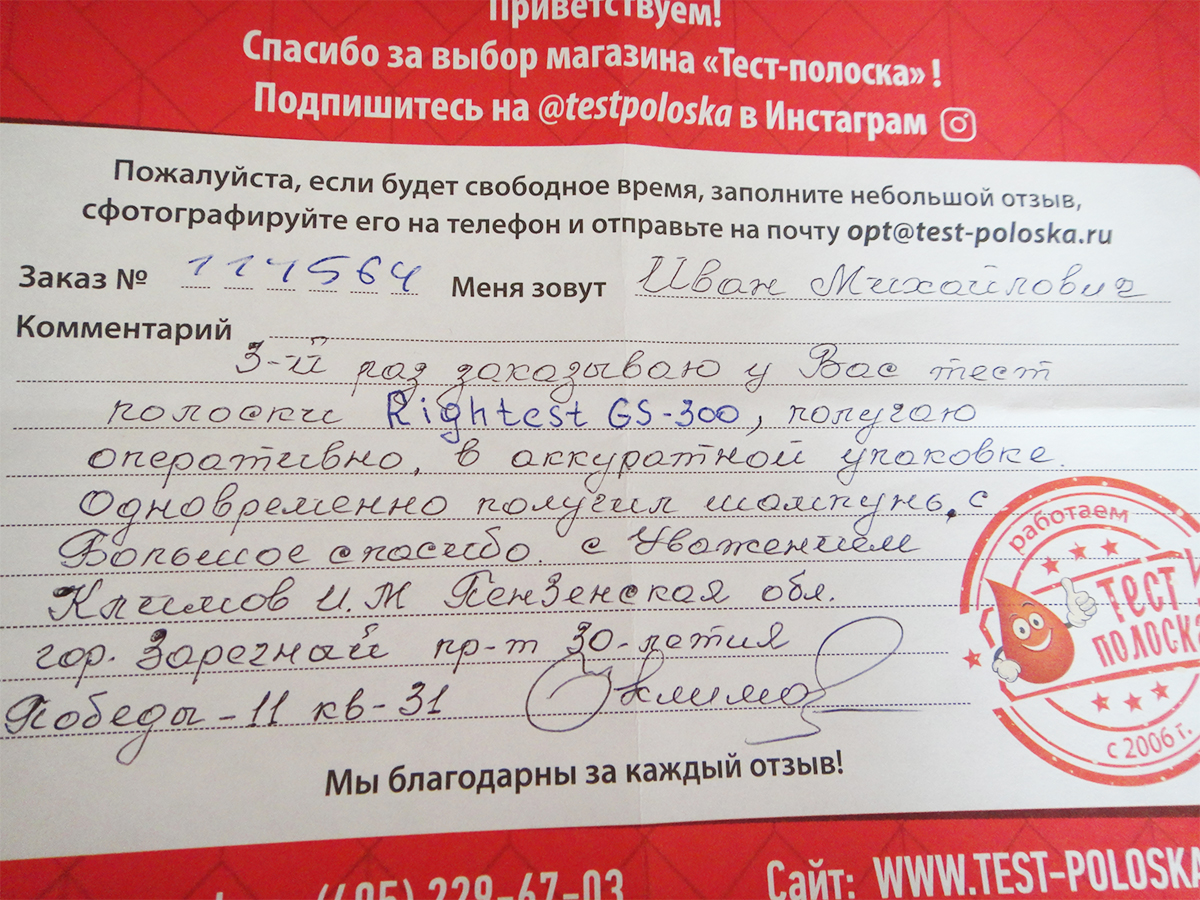 Приветствуем!
Спасибо за выбор магазина «Тест-полоска» !
Подпишитесь на @testpoloska в Инстаграм
Пожалуйста, если будет свободное время, заполните небольшой отзыв,
сфотографируйте его на телефон и отправьте на почту opt@test-poloska.ru
Заказ № 111564 Меня зовут Иван Михайлович
Комментарий
3-й раз заказываю у Вас тест
полоски Rightest GS-300, получаю
оперативно, в аккуратной упаковке.
Одновременно получил шампунь, с
Большое спасибо. с Уважением
Климов И.М Пензенская обл.
гор. Заречный пр-т 30-летия
Победы-11 кв-31 Климов
работаем
ТЕСТ
ПОЛОСКА
с 2006 г.
Мы благодарны за каждый отзыв!
(495) 229-67-03 Сайт: WWW.TEST-POLOSKA